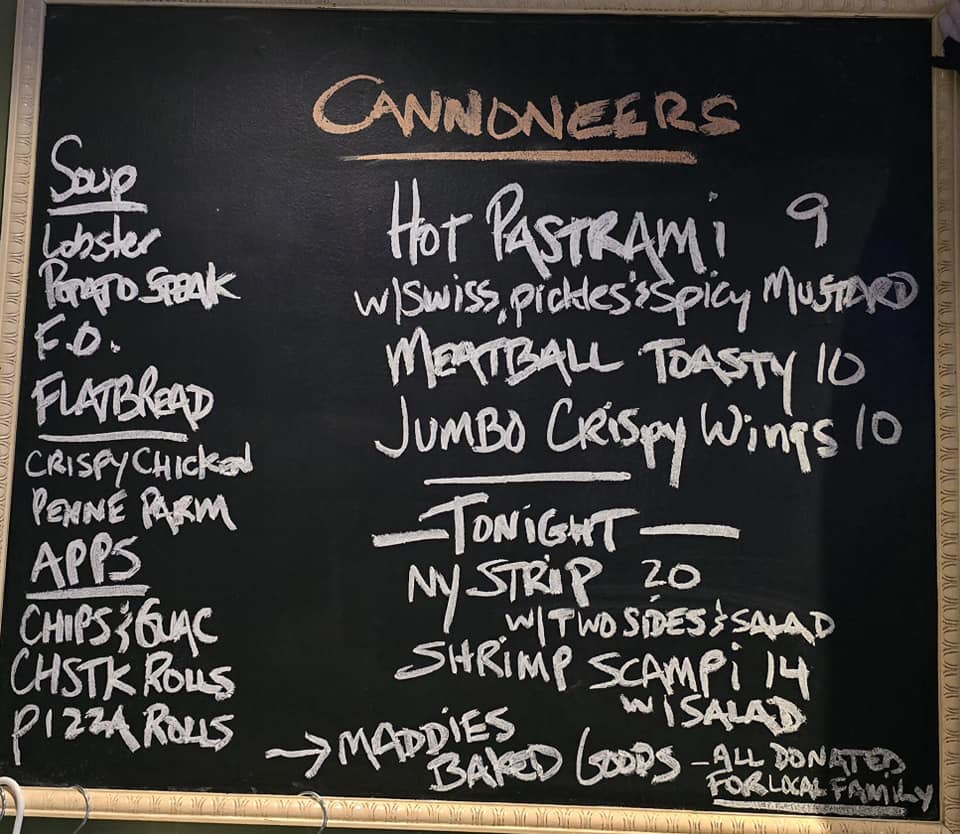 CANNONEERS
Soup
Lobster
POTATO STEAK
F.O.
FLATBREAD
CRISPY CHICKEN
PENNE PARM
APPS
CHIPS & GUAC
CHSTK ROLLS
PIZZA ROLLS
HOT PASTRAMi 9
W/SWISS, PICKLES & SPICY MUSTARD
MEATBALL TOASTY 10
JUMBO CRiSpy Wings 10
—TONiGHT—
NY STRiP 20
W/TWO SIDES & SALAD
SHRiMP SCAMPi 14
W/SALAD
→ MADDiES
BAKED GOODS – ALL DONATED
FOR LOCAL FAMILY